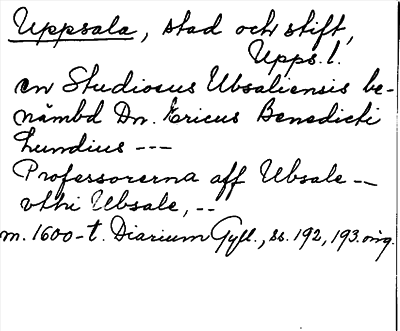 Uppsala, stad och stift,
Upps. l.
en Studiosus Ubsaliensis be-
nämbd Dn. Ericus Benedicti
Lundius ---
Professorerna aff Ubsale --
vthi Ubsale, --
m. 1600-t. Diarium Gyll., ss. 192, 193. orig.